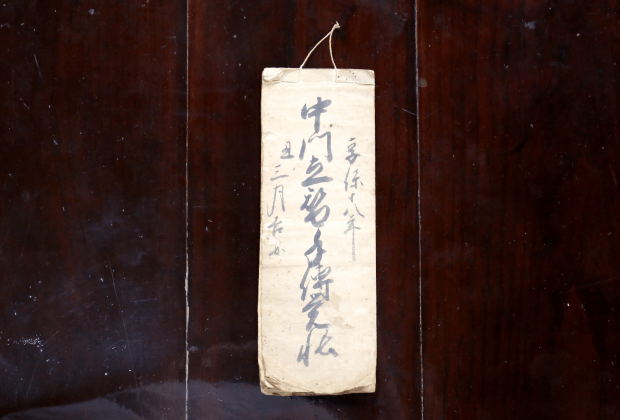 享保十八年
中門立替手傳覚帳
丑三月吉日